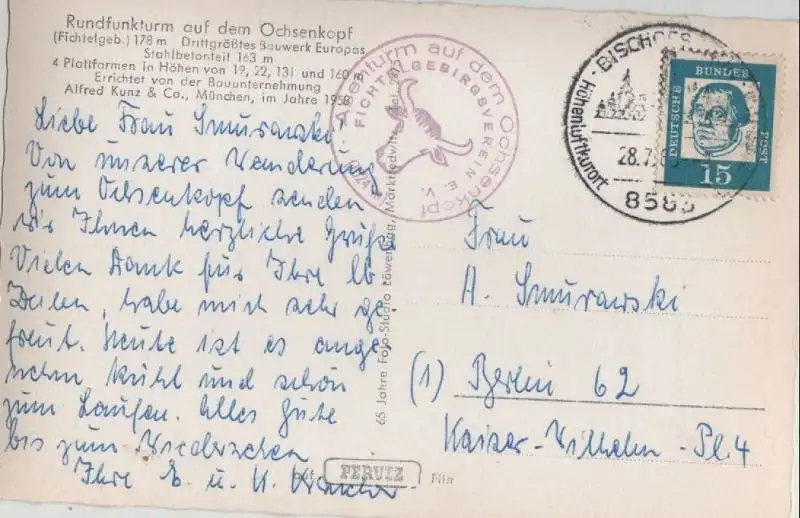 Rundfunkturm auf dem Ochsenkopf
(Fichtelgeb.) 178 m Drittgrößtes Bauwerk Europas
Stahlbetonteil 163 m
4 Plattformen in Höhen von 19, 22, 131 und 160 m
Errichtet von der Bauunternehmung
Alfred Kunz & Co., München, im Jahre 1958
Liebe Frau Smurawski!
Von unserer Wanderung
zum Ochsenkopf senden
wir Ihnen herzliche Grüße
Vielen Dank für Ihre lb
Zeilen, habe mich sehr ge-
freut. Heute ist es ange-
nehm kühl und schön
zum Laufen. Alles Gute
bis zum Wiedersehen
Ihre E. u. K.
Asenturm auf dem Ochsenkopf
FICHTELGEBIRGSVEREIN E. V.
65 Jahre Foto-Studio Löwenhag, Marktredwitz
auf PERUTZ Film
BISCHOFS
Höhenluftkurort
28.7.
858
DEUTSCHE BUNDES POST
15
Frau
H. Smurawski
(1) Berlin 62
Kaiser-Wilhelm-Pl. 4